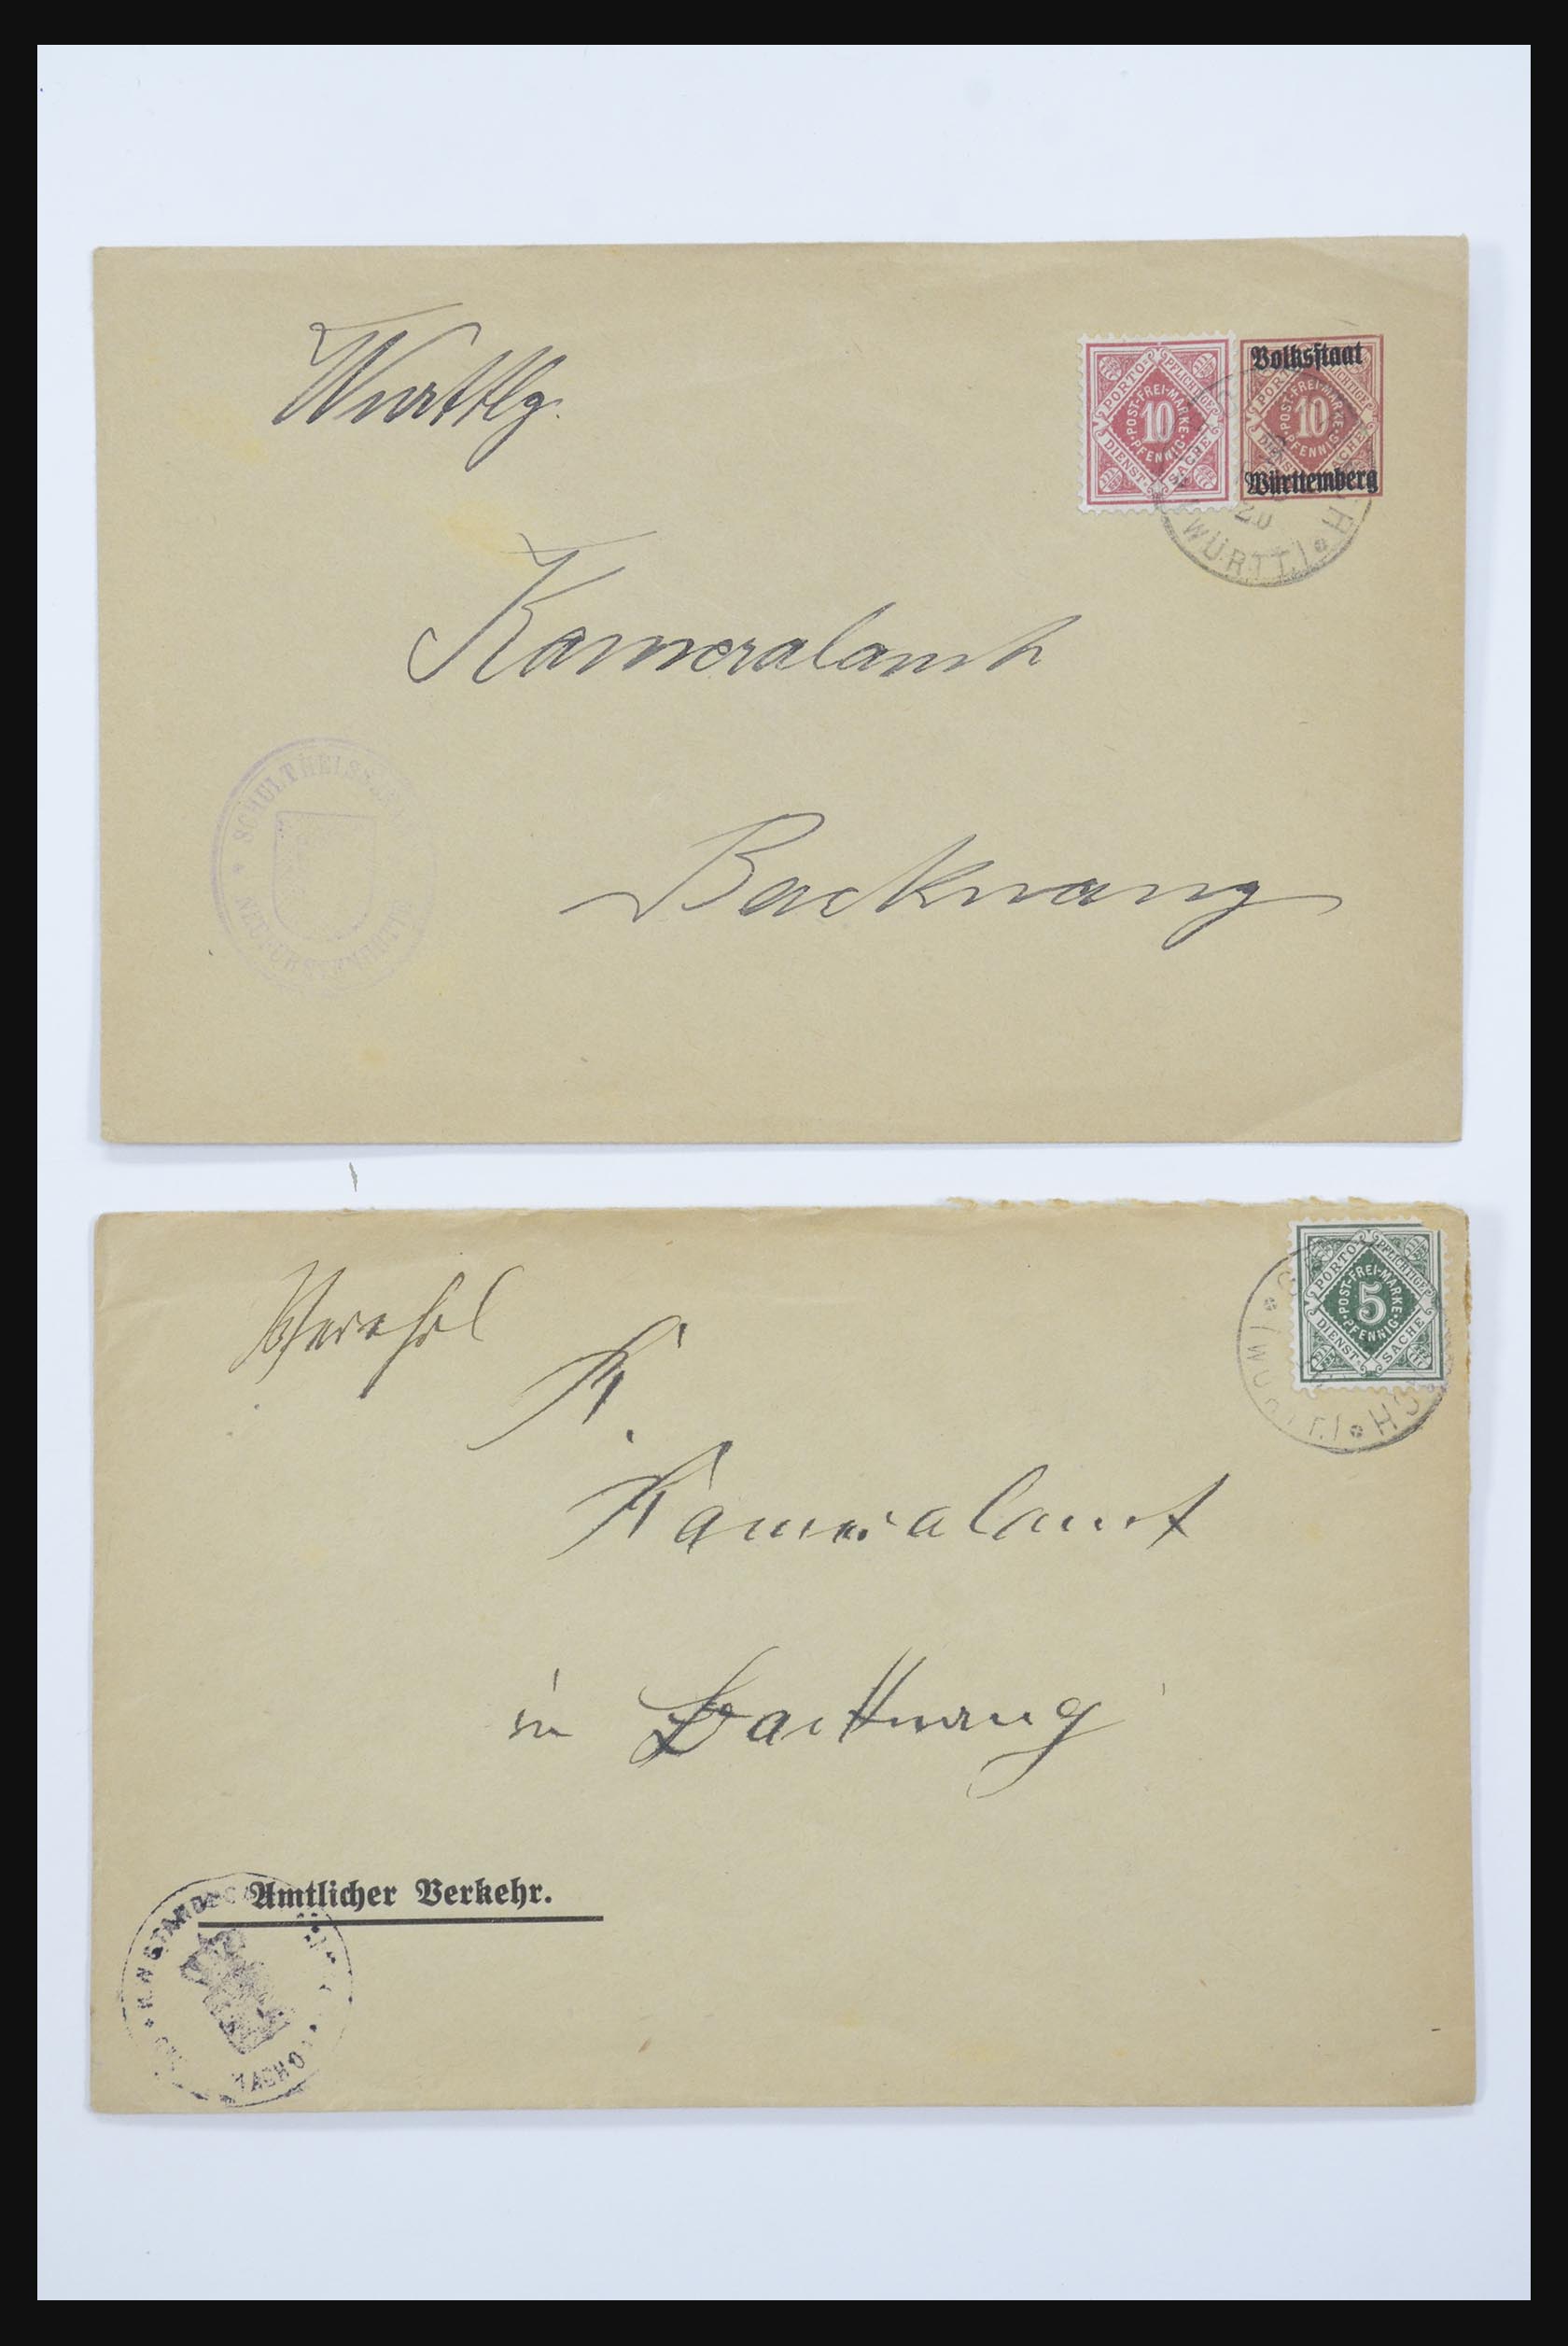 Württbg.
PORTO PFLICHTIGE
POST-FREI-MARKE
10
PFENNIG
DIENST SACHE
Volksstaat
PORTO PFLICHTIGE
POST-FREI-MARKE
10
PFENNIG
DIENST SACHE
Württemberg
20
(WÜRTT.)
Kameralamt
SCHULTHEISSENAMT
NEUFÜRSTENHÜTTE
Backnang
PORTO PFLICHTIGE
POST-FREI-MARKE
5
PFENNIG
DIENST SACHE
(WÜRTT.)
K.
Kameralamt
in Backnang
Amtlicher Verkehr.